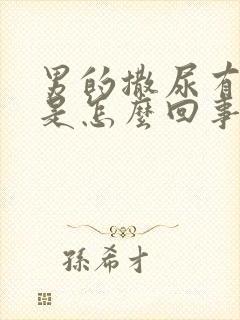 男的撒尿有
是怎麼回事
孫希才